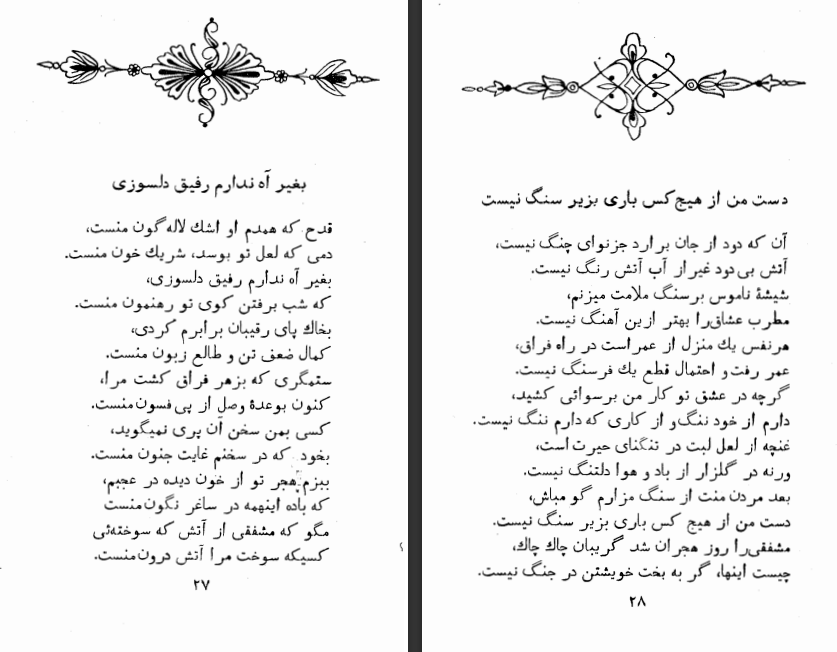 بغیر آه ندارم رفیق دلسوزی
قدح که همدم او اشك لاله گون منست،
دمی که لعل تو بوسد، شریك خون منست.
بغیر آه ندارم رفیق دلسوزی،
که شب برفتن کوی تو رهنمون منست.
بخاك پای رقیبان برابرم کردی،
کمال ضعف تن و طالع زبون منست.
ستمگری که بزهر فراق کشت مرا،
کنون بوعدۀ وصل از پی فسون منست.
کسی بمن سخن آن پری نمیگوید،
بخود که در سخنم غایت جنون منست.
ببزم هجر تو از خون دیده در عجبم،
که باده اینهمه در ساغر نگون منست
مگو که مشفقی از آتش که سوخته‌ئی
کسیکه سوخت مرا آتش درون منست.
۲۷
دست من از هیچ کس باری بزیر سنگ نیست
آن که دود از جان برارد جز نوای چنگ نیست،
آتش بی دود غیر از آب آتش رنگ نیست.
شیشۀ ناموس بر سنگ ملامت میزنم،
مطرب عشاق را بهتر ازین آهنگ نیست.
هر نفس یك منزل از عمر است در راه فراق،
عمر رفت و احتمال قطع یك فرسنگ نیست.
گرچه در عشق تو کار من برسوائی کشید،
دارم از خود ننگ و از کاری که دارم ننگ نیست.
غنچه از لعل لبت در تنگنای حیرت است،
ورنه در گلزار از باد و هوا دلتنگ نیست.
بعد مردن منت از سنگ مزارم گو مباش،
دست من از هیچ کس باری بزیر سنگ نیست.
مشفقی را روز هجران شد گریبان چاك چاك،
چیست اینها، گر به بخت خویشتن در جنگ نیست.
۲۸